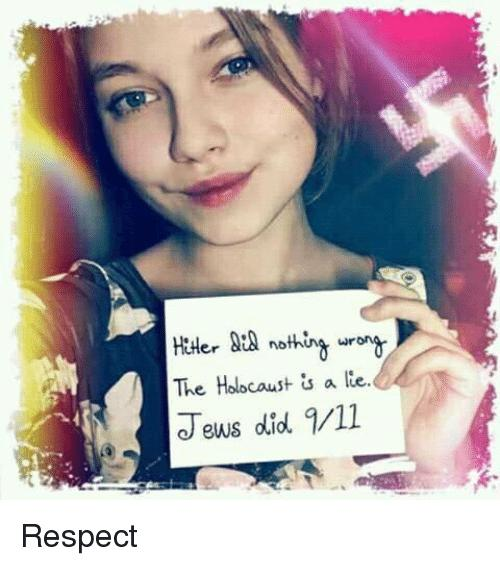 Hitler did nothing wrong
The Holocaust is a lie.
Jews did 9/11
Respect